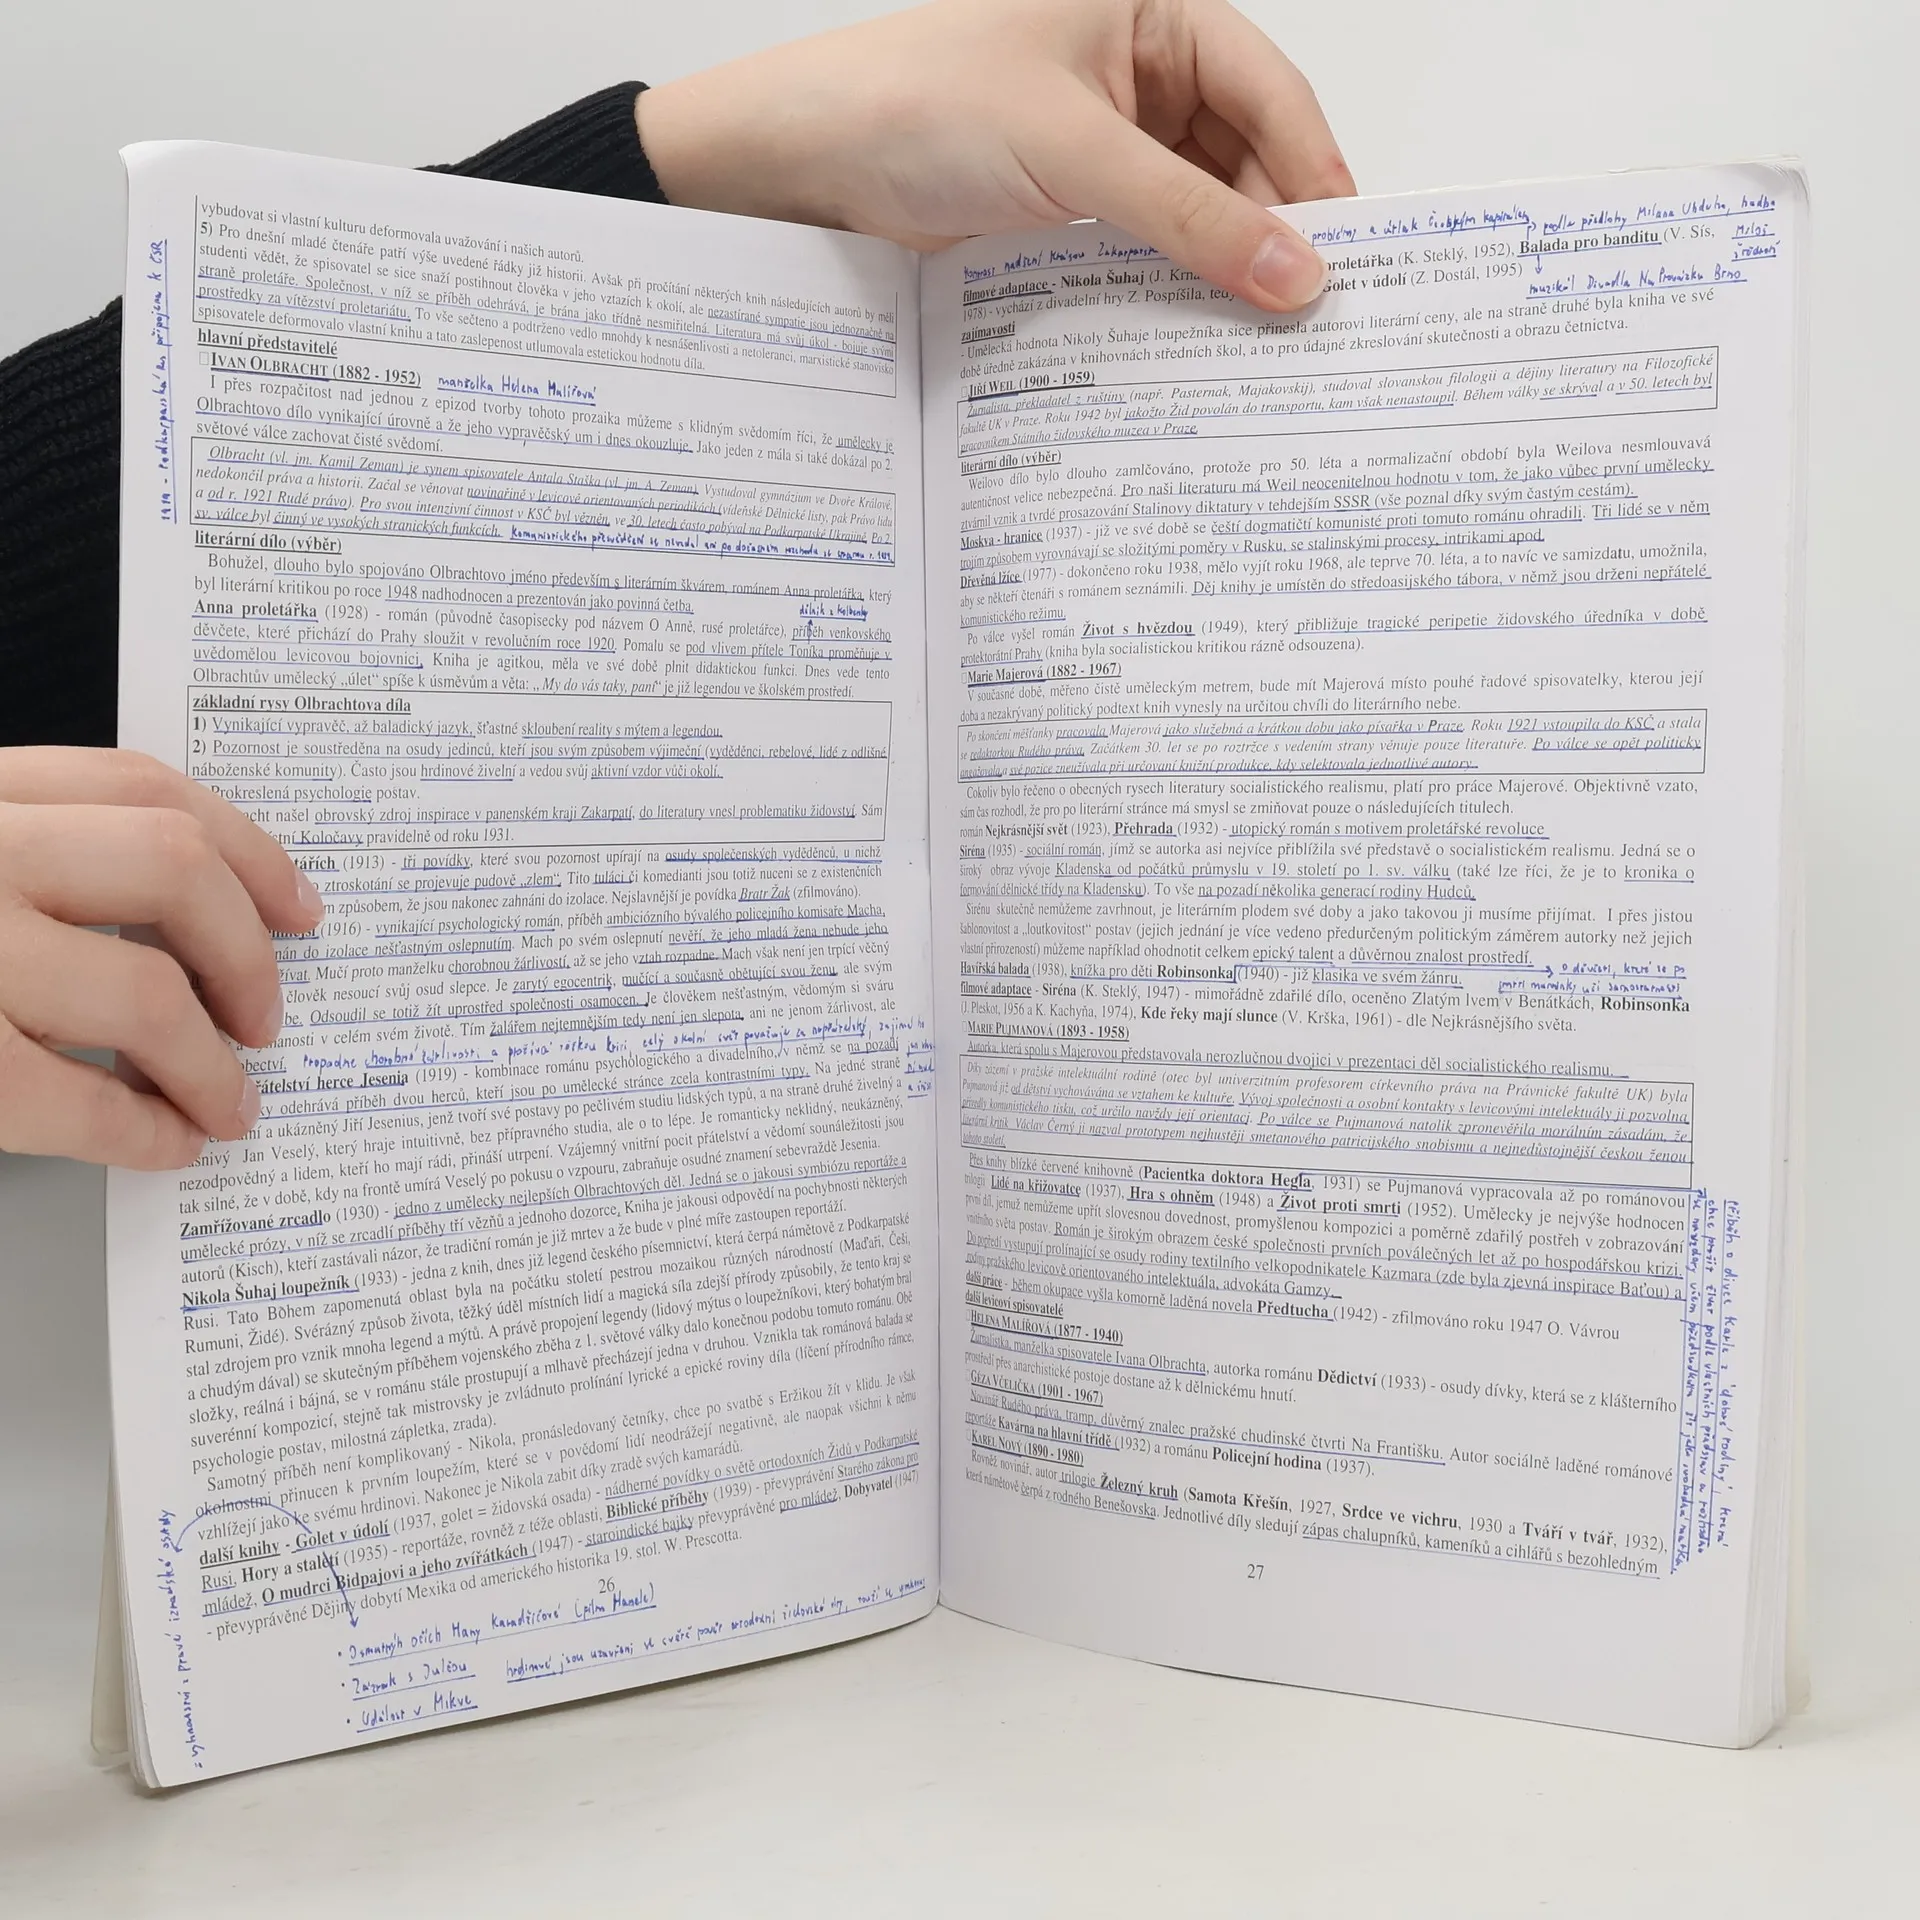 vybudovat si vlastní kulturu deformovala uvažování i našich autorů.
5) Pro dnešní mladé čtenáře patří výše uvedené řádky již historii. Avšak při pročítání některých knih následujících autorů by měli
studenti vědět, že spisovatel se sice snaží postihnout člověka v jeho vztazích k okolí, ale nezastírané sympatie jsou jednoznačně na
straně proletáře. Společnost, v níž se příběh odehrává, je brána jako třídně nesmiřitelná. Literatura má svůj úkol - bojuje svými
prostředky za vítězství proletariátu. To vše sečteno a podtrženo vedlo mnohdy k nesnášenlivosti a netoleranci, marxistické stanovisko
spisovatele deformovalo vlastní knihu a tato zaslepenost utlumovala estetickou hodnotu díla.
hlavní představitelé
IVAN OLBRACHT (1882 - 1952) manželka Helena Malířová
I přes rozpačitost nad jednou z epizod tvorby tohoto prozaika můžeme s klidným svědomím říci, že umělecky je
Olbrachtovo dílo vynikající úrovně a že jeho vypravěčský um i dnes okouzluje. Jako jeden z mála si také dokázal po 2.
světové válce zachovat čisté svědomí.
Olbracht (vl. jm. Kamil Zeman) je synem spisovatele Antala Staška (vl. jm. A. Zeman). Vystudoval gymnázium ve Dvoře Králové,
nedokončil práva a historii. Začal se věnovat novinařině v levicově orientovaných periodikách (vídeňské Dělnické listy, pak Právo lidu
a od r. 1921 Rudé právo). Pro svou intenzivní činnost v KSČ byl vězněn, ve 30. letech často pobýval na Podkarpatské Ukrajině. Po 2.
sv. válce byl činný ve vysokých stranických funkcích. Komunistického přesvědčení se nevzdal ani po dočasném rozchodu se stranou r. 1929
literární dílo (výběr)
Bohužel, dlouho bylo spojováno Olbrachtovo jméno především s literárním škvárem, románem Anna proletářka, který
byl literární kritikou po roce 1948 nadhodnocen a prezentován jako povinná četba.
dělník z Kolbenky
Anna proletářka (1928) - román (původně časopisecky pod názvem O Anně, rusé proletářce), příběh venkovského
děvčete, které přichází do Prahy sloužit v revolučním roce 1920. Pomalu se pod vlivem přítele Toníka proměňuje v
uvědomělou levicovou bojovnici. Kniha je agitkou, měla ve své době plnit didaktickou funkci. Dnes vede tento
Olbrachtův umělecký „úlet“ spíše k úsměvům a věta: „My do vás taky, paní“ je již legendou ve školském prostředí.
základní rysy Olbrachtova díla
1) Vynikající vypravěč, až baladický jazyk, šťastné skloubení reality s mýtem a legendou.
2) Pozornost je soustředěna na osudy jedinců, kteří jsou svým způsobem výjimeční (vyděděnci, rebelové, lidé z odlišné
náboženské komunity). Často jsou hrdinové živelní a vedou svůj aktivní vzdor vůči okolí.
Prokreslená psychologie postav.
cht našel obrovský zdroj inspirace v panenském kraji Zakarpatí, do literatury vnesl problematiku židovství. Sám
stní Koločavy pravidelně od roku 1931.
tářích (1913) - tři povídky, které svou pozornost upírají na osudy společenských vyděděnců, u nichž
o ztroskotání se projevuje pudově „zlem“. Tito tuláci či komedianti jsou totiž nuceni se z existenčních
m způsobem, že jsou nakonec zahnáni do izolace. Nejslavnější je povídka Bratr Žak (zfilmováno).
(1916) - vynikající psychologický román, příběh ambiciózního bývalého policejního komisaře Macha,
nán do izolace nešťastným oslepnutím. Mach po svém oslepnutí nevěří, že jeho mladá žena nebude jeho
žívat. Mučí proto manželku chorobnou žárlivostí, až se jeho vztah rozpadne. Mach však není jen trpící věčný
člověk nesoucí svůj osud slepce. Je zarytý egocentrik, mučící a současně obětující svou ženu, ale svým
be. Odsoudil se totiž žít uprostřed společnosti osamocen. Je člověkem nešťastným, vědomým si sváru
manosti v celém svém životě. Tím žalářem nejtemnějším tedy není jen slepota, ani ne jenom žárlivost, ale
obectví. Propadne chorobné žárlivosti a prožívá těžkou krizi, celý okolní svět považuje za nepřátelský, zajímá ho
řátelství herce Jesenia (1919) - kombinace románu psychologického a divadelního, v němž se na pozadí
ky odehrává příběh dvou herců, kteří jsou po umělecké stránce zcela kontrastními typy. Na jedné straně
ní a ukázněný Jiří Jesenius, jenž tvoří své postavy po pečlivém studiu lidských typů, a na straně druhé živelný a
ášnivý Jan Veselý, který hraje intuitivně, bez přípravného studia, ale o to lépe. Je romanticky neklidný, neukázněný,
nezodpovědný a lidem, kteří ho mají rádi, přináší utrpení. Vzájemný vnitřní pocit přátelství a vědomí sounáležitosti jsou
tak silné, že v době, kdy na frontě umírá Veselý po pokusu o vzpouru, zabraňuje osudné znamení sebevraždě Jesenia.
Zamřížované zrcadlo (1930) - jedno z umělecky nejlepších Olbrachtových děl. Jedná se o jakousi symbiózu reportáže a
umělecké prózy, v níž se zrcadlí příběhy tří vězňů a jednoho dozorce. Kniha je jakousi odpovědí na pochybnosti některých
autorů (Kisch), kteří zastávali názor, že tradiční román je již mrtev a že bude v plné míře zastoupen reportáží.
Nikola Šuhaj loupežník (1933) - jedna z knih, dnes již legend českého písemnictví, která čerpá námětově z Podkarpatské
Rusi. Tato Bohem zapomenutá oblast byla na počátku století pestrou mozaikou různých národností (Maďaři, Češi,
Rumuni, Židé). Svérázný způsob života, těžký úděl místních lidí a magická síla zdejší přírody způsobily, že tento kraj se
stal zdrojem pro vznik mnoha legend a mýtů. A právě propojení legendy (lidový mýtus o loupežníkovi, který bohatým bral
a chudým dával) se skutečným příběhem vojenského zběha z 1. světové války dalo konečnou podobu tomuto románu. Obě
složky, reálná i bájná, se v románu stále prostupují a mlhavě přecházejí jedna v druhou. Vznikla tak románová balada se
suverénní kompozicí, stejně tak mistrovsky je zvládnuto prolínání lyrické a epické roviny díla (líčení přírodního rámce,
psychologie postav, milostná zápletka, zrada).
Samotný příběh není komplikovaný - Nikola, pronásledovaný četníky, chce po svatbě s Eržikou žít v klidu. Je však
okolnostmi přinucen k prvním loupežím, které se v povědomí lidí neodrážejí negativně, ale naopak všichni k němu
vzhlížejí jako ke svému hrdinovi. Nakonec je Nikola zabit díky zradě svých kamarádů.
další knihy - Golet v údolí (1937, golet = židovská osada) - nádherné povídky o světě ortodoxních Židů v Podkarpatské
Rusi, Hory a staletí (1935) - reportáže, rovněž z téže oblasti, Biblické příběhy (1939) - převyprávění Starého zákona pro
mládež, O mudrci Bidpajovi a jeho zvířátkách (1947) - staroindické bajky převyprávěné pro mládež, Dobyvatel (1947)
- převyprávěné Dějiny dobytí Mexika od amerického historika 19. stol. W. Prescotta.
26
• O smutných očích Hany Karadžičové (film Hanele)
• Zázrak s Julčou
• Událost v Mikve
hrdinové jsou uzavřeni ve světě pověr ortodoxní židovské víry
1919 - Podkarpatská Rus připojena k ČSR
proletářka (K. Steklý, 1952), Balada pro banditu (V. Sís,
podle předlohy Milana Uhdeho, hudba
Miloš
Štědroň
filmové adaptace - Nikola Šuhaj (J. Krňa
Golet v údolí (Z. Dostál, 1995)
muzikál Divadla Na Provázku Brno
1978) - vychází z divadelní hry Z. Pospíšila, tedy
zajímavosti
- Umělecká hodnota Nikoly Šuhaje loupežníka sice přinesla autorovi literární ceny, ale na straně druhé byla kniha ve své
době úředně zakázána v knihovnách středních škol, a to pro údajné zkreslování skutečnosti a obrazu četnictva.
JIŘÍ WEIL (1900 - 1959)
Žurnalista, překladatel z ruštiny (např. Pasternak, Majakovskij), studoval slovanskou filologii a dějiny literatury na Filozofické
fakultě UK v Praze. Roku 1942 byl jakožto Žid povolán do transportu, kam však nenastoupil. Během války se skrýval a v 50. letech byl
pracovníkem Státního židovského muzea v Praze.
literární dílo (výběr)
Weilovo dílo bylo dlouho zamlčováno, protože pro 50. léta a normalizační období byla Weilova nesmlouvavá
autentičnost velice nebezpečná. Pro naši literaturu má Weil neocenitelnou hodnotu v tom, že jako vůbec první umělecky
ztvárnil vznik a tvrdé prosazování Stalinovy diktatury v tehdejším SSSR (vše poznal díky svým častým cestám).
Moskva - hranice (1937) - již ve své době se čeští dogmatičtí komunisté proti tomuto románu ohradili. Tři lidé se v něm
trojím způsobem vyrovnávají se složitými poměry v Rusku, se stalinskými procesy, intrikami apod.
Dřevěná lžíce (1977) - dokončeno roku 1938, mělo vyjít roku 1968, ale teprve 70. léta, a to navíc ve samizdatu, umožnila,
aby se někteří čtenáři s románem seznámili. Děj knihy je umístěn do středoasijského tábora, v němž jsou drženi nepřátelé
komunistického režimu.
Po válce vyšel román Život s hvězdou (1949), který přibližuje tragické peripetie židovského úředníka v době
protektorátní Prahy (kniha byla socialistickou kritikou rázně odsouzena).
Marie Majerová (1882 - 1967)
V současné době, měřeno čistě uměleckým metrem, bude mít Majerová místo pouhé řadové spisovatelky, kterou její
doba a nezakrývaný politický podtext knih vynesly na určitou chvíli do literárního nebe.
Po skončení měšťanky pracovala Majerová jako služebná a krátkou dobu jako písařka v Praze. Roku 1921 vstoupila do KSČ a stala
se redaktorkou Rudého práva. Začátkem 30. let se po roztržce s vedením strany věnuje pouze literatuře. Po válce se opět politicky
angažovala a své pozice zneužívala při určování knižní produkce, kdy selektovala jednotlivé autory.
Cokoliv bylo řečeno o obecných rysech literatury socialistického realismu, platí pro práce Majerové. Objektivně vzato,
sám čas rozhodl, že pro po literární stránce má smysl se zmiňovat pouze o následujících titulech.
román Nejkrásnější svět (1923), Přehrada (1932) - utopický román s motivem proletářské revoluce
Siréna (1935) - sociální román, jímž se autorka asi nejvíce přiblížila své představě o socialistickém realismu. Jedná se o
široký obraz vývoje Kladenska od počátků průmyslu v 19. století po 1. sv. válku (také lze říci, že je to kronika o
formování dělnické třídy na Kladensku). To vše na pozadí několika generací rodiny Hudců.
Sirénu skutečně nemůžeme zavrhnout, je literárním plodem své doby a jako takovou ji musíme přijímat. I přes jistou
šablonovitost a „loutkovitost“ postav (jejich jednání je více vedeno předurčeným politickým záměrem autorky než jejich
vlastní přirozeností) můžeme například ohodnotit celkem epický talent a důvěrnou znalost prostředí.
Havířská balada (1938), knížka pro děti Robinsonka (1940) - již klasika ve svém žánru.
o děvčeti, které se po
smrti maminky učí samostatnosti
filmové adaptace - Siréna (K. Steklý, 1947) - mimořádně zdařilé dílo, oceněno Zlatým lvem v Benátkách, Robinsonka
(J. Pleskot, 1956 a K. Kachyňa, 1974), Kde řeky mají slunce (V. Krška, 1961) - dle Nejkrásnějšího světa.
MARIE PUJMANOVÁ (1893 - 1958)
Autorka, která spolu s Majerovou představovala nerozlučnou dvojici v prezentaci děl socialistického realismu.
Díky zázemí v pražské intelektuální rodině (otec byl univerzitním profesorem církevního práva na Právnické fakultě UK) byla
Pujmanová již od dětství vychovávána se vztahem ke kultuře. Vývoj společnosti a osobní kontakty s levicovými intelektuály ji pozvolna
přivedly komunistického tisku, což určilo navždy její orientaci. Po válce se Pujmanová natolik zpronevěřila morálním zásadám, že
literární kritik Václav Černý ji nazval prototypem nejhustějí smetanového patricijského snobismu a nejnedůstojnější českou ženou
tohoto století.
Přes knihy blízké červené knihovně (Pacientka doktora Hegla, 1931) se Pujmanová vypracovala až po románovou
trilogii Lidé na křižovatce (1937), Hra s ohněm (1948) a Život proti smrti (1952). Umělecky je nejvýše hodnocen
první díl, jemuž nemůžeme upřít slovesnou dovednost, promyšlenou kompozici a poměrně zdařilý postřeh v zobrazování
vnitřního světa postav. Román je širokým obrazem české společnosti prvních poválečných let až po hospodářskou krizi.
Do popředí vystupují prolínající se osudy rodiny textilního velkopodnikatele Kazmara (zde byla zjevná inspirace Baťou) a
rodiny pražského levicově orientovaného intelektuála, advokáta Gamzy.
další práce - během okupace vyšla komorně laděná novela Předtucha (1942) - zfilmováno roku 1947 O. Vávrou
další levicoví spisovatelé
HELENA MALÍŘOVÁ (1877 - 1940)
Žurnalistka, manželka spisovatele Ivana Olbrachta, autorka románu Dědictví (1933) - osudy dívky, která se z klášterního
prostředí přes anarchistické postoje dostane až k dělnickému hnutí.
GÉZA VČELIČKA (1901 - 1967)
Novinář Rudého práva, tramp, důvěrný znalec pražské chudinské čtvrti Na Františku. Autor sociálně laděné románové
reportáže Kavárna na hlavní třídě (1932) a románu Policejní hodina (1937).
KAREL NOVÝ (1890 - 1980)
Rovněž novinář, autor trilogie Železný kruh (Samota Křešín, 1927, Srdce ve vichru, 1930 a Tváří v tvář, 1932),
která námětově čerpá z rodného Benešovska. Jednotlivé díly sledují zápas chalupníků, kameníků a cihlářů s bezohledným
27